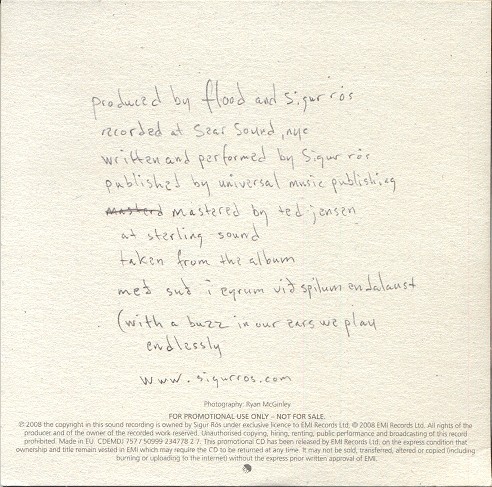 produced by flood and sigur rós
recorded at Sear Sound, nyc
written and performed by Sigur rór
published by universal music publishing
masterd mastered by ted jensen
at sterling sound
taken from the album
með suð i eyrum við spilum endalaust
(with a buzz in our ears we play
endlessly
www.sigurros.com
Photography: Ryan McGinley
FOR PROMOTIONAL USE ONLY – NOT FOR SALE.
℗ 2008 the copyright in this sound recording is owned by Sigur Rós under exclusive licence to EMI Records Ltd. © 2008 EMI Records Ltd. All rights of the
producer and of the owner of the recorded work reserved. Unauthorised copying, hiring, renting, public performance and broadcasting of this record
prohibited. Made in EU. CDEMDJ 757 / 50999 234778 2 7. This promotional CD has been released by EMI Records Ltd. on the express condition that
ownership and title remain vested in EMI which may require the CD to be returned at any time. It may not be sold, transferred, altered or copied (including
burning or uploading to the internet) without the express prior written approval of EMI.